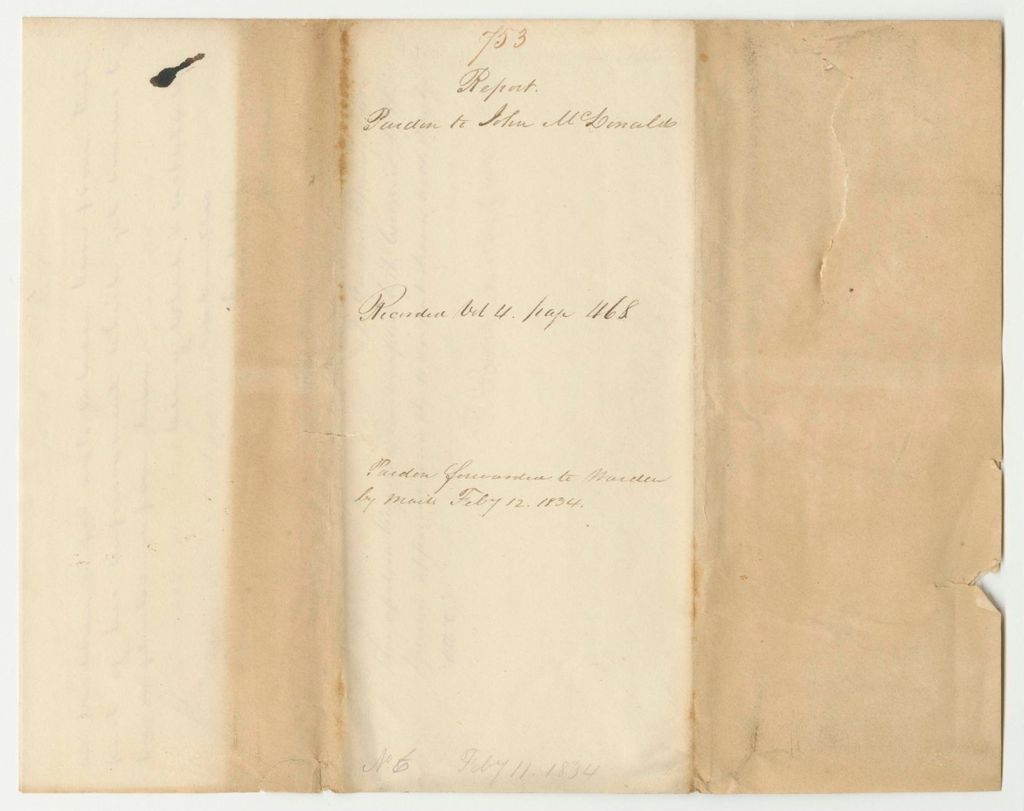 753
Report.
Pardon to John McDonald
Recorded Vol 4. page 468
Pardon forwarded to Warden
by mail Feby 12. 1834.
No 6 Feby 11. 1834